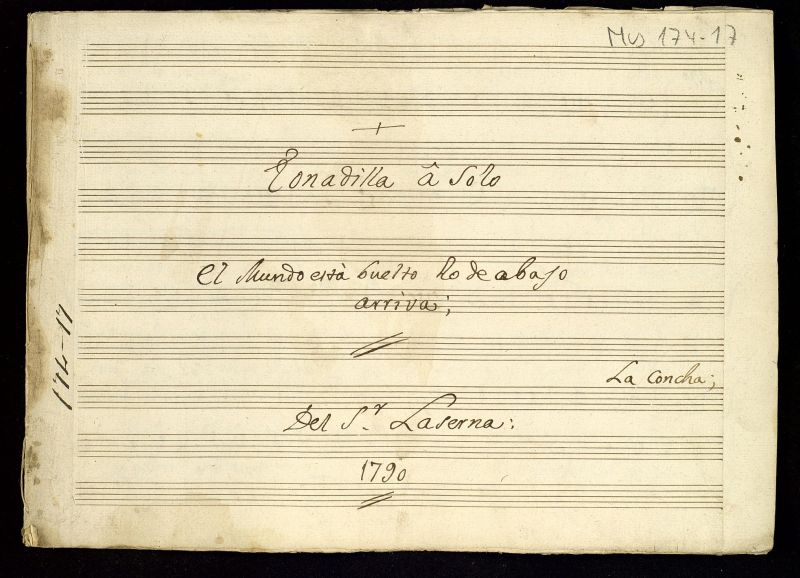 Mus 174-17
Tonadilla â Solo
El Mundo està buelto lo de abajo
arriva;
La Concha;
Del S.r Laserna:
1790
174-17